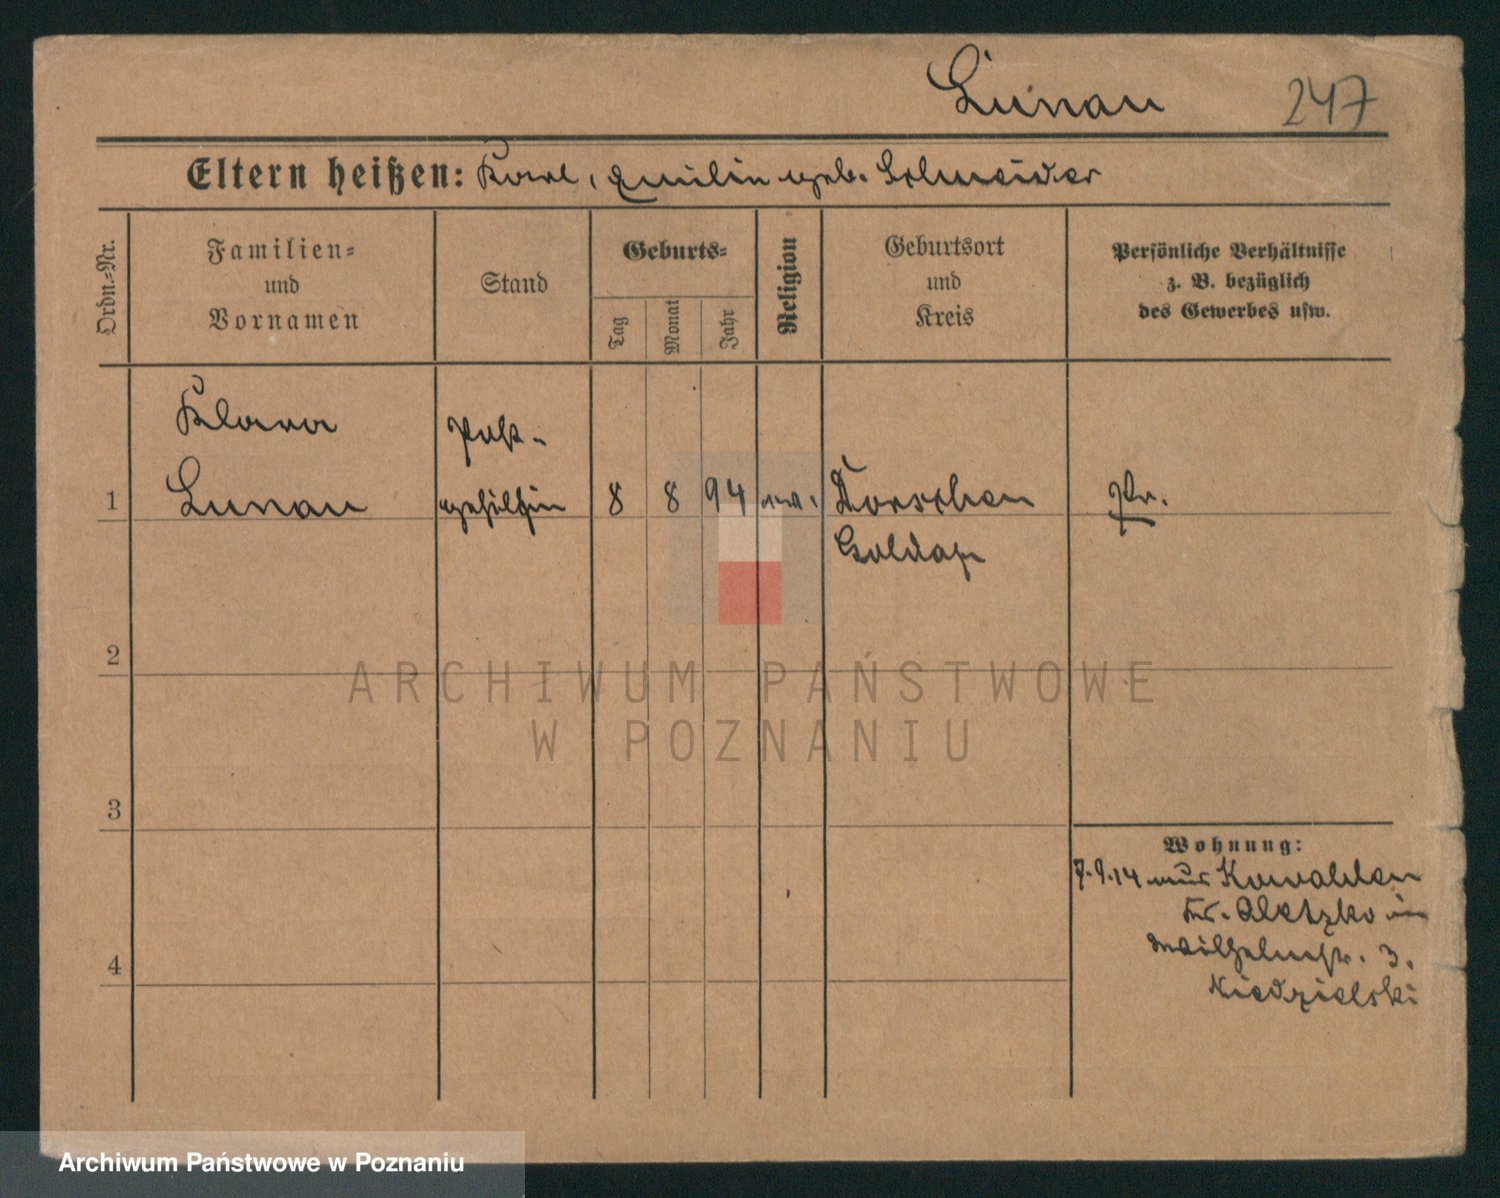 Lunau 247
Eltern heißen: Karl, Emilie geb. Schneider
Ordn.-Nr.
Familien-
und
Vornamen
Stand
Geburts-
Tag
Monat
Jahr
Religion
Geburtsort
und
Kreis
Persönliche Verhältnisse
z. B. bezüglich
des Gewerbes usw.
Klara
Post-
1 Lunau gehilfin 8 8 94 ev. Dorschen Pr.
Goldap
2
3
4
Wohnung:
7.9.14 aus Kowahlen
Kr. Oletzko in
Wilhelmstr. 3.
Niedzielski
ARCHIWUM PAŃSTWOWE
W POZNANIU
Archiwum Państwowe w Poznaniu